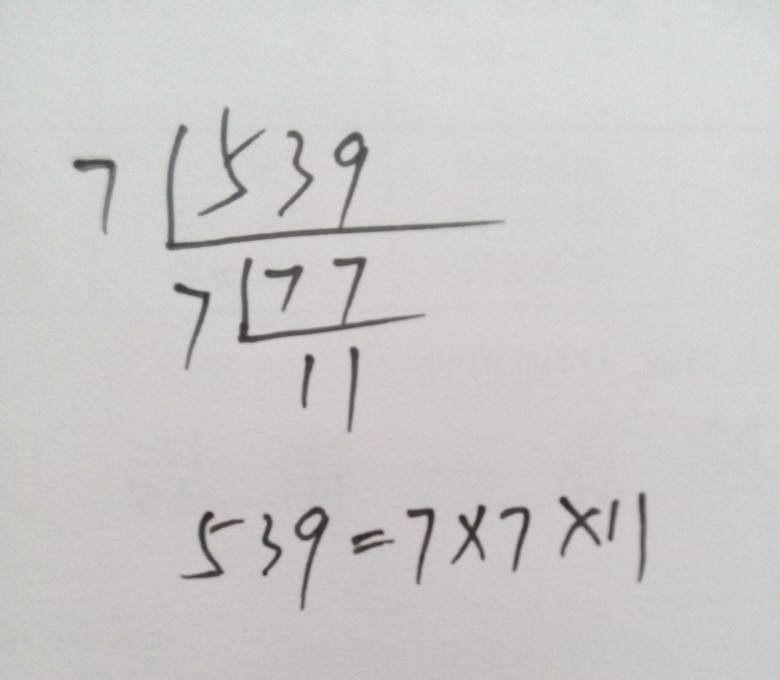 7 539
7 77
11
539=7×7×11